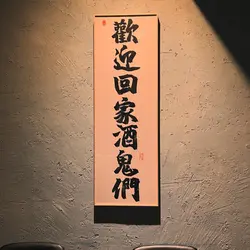 歡迎回家酒鬼們